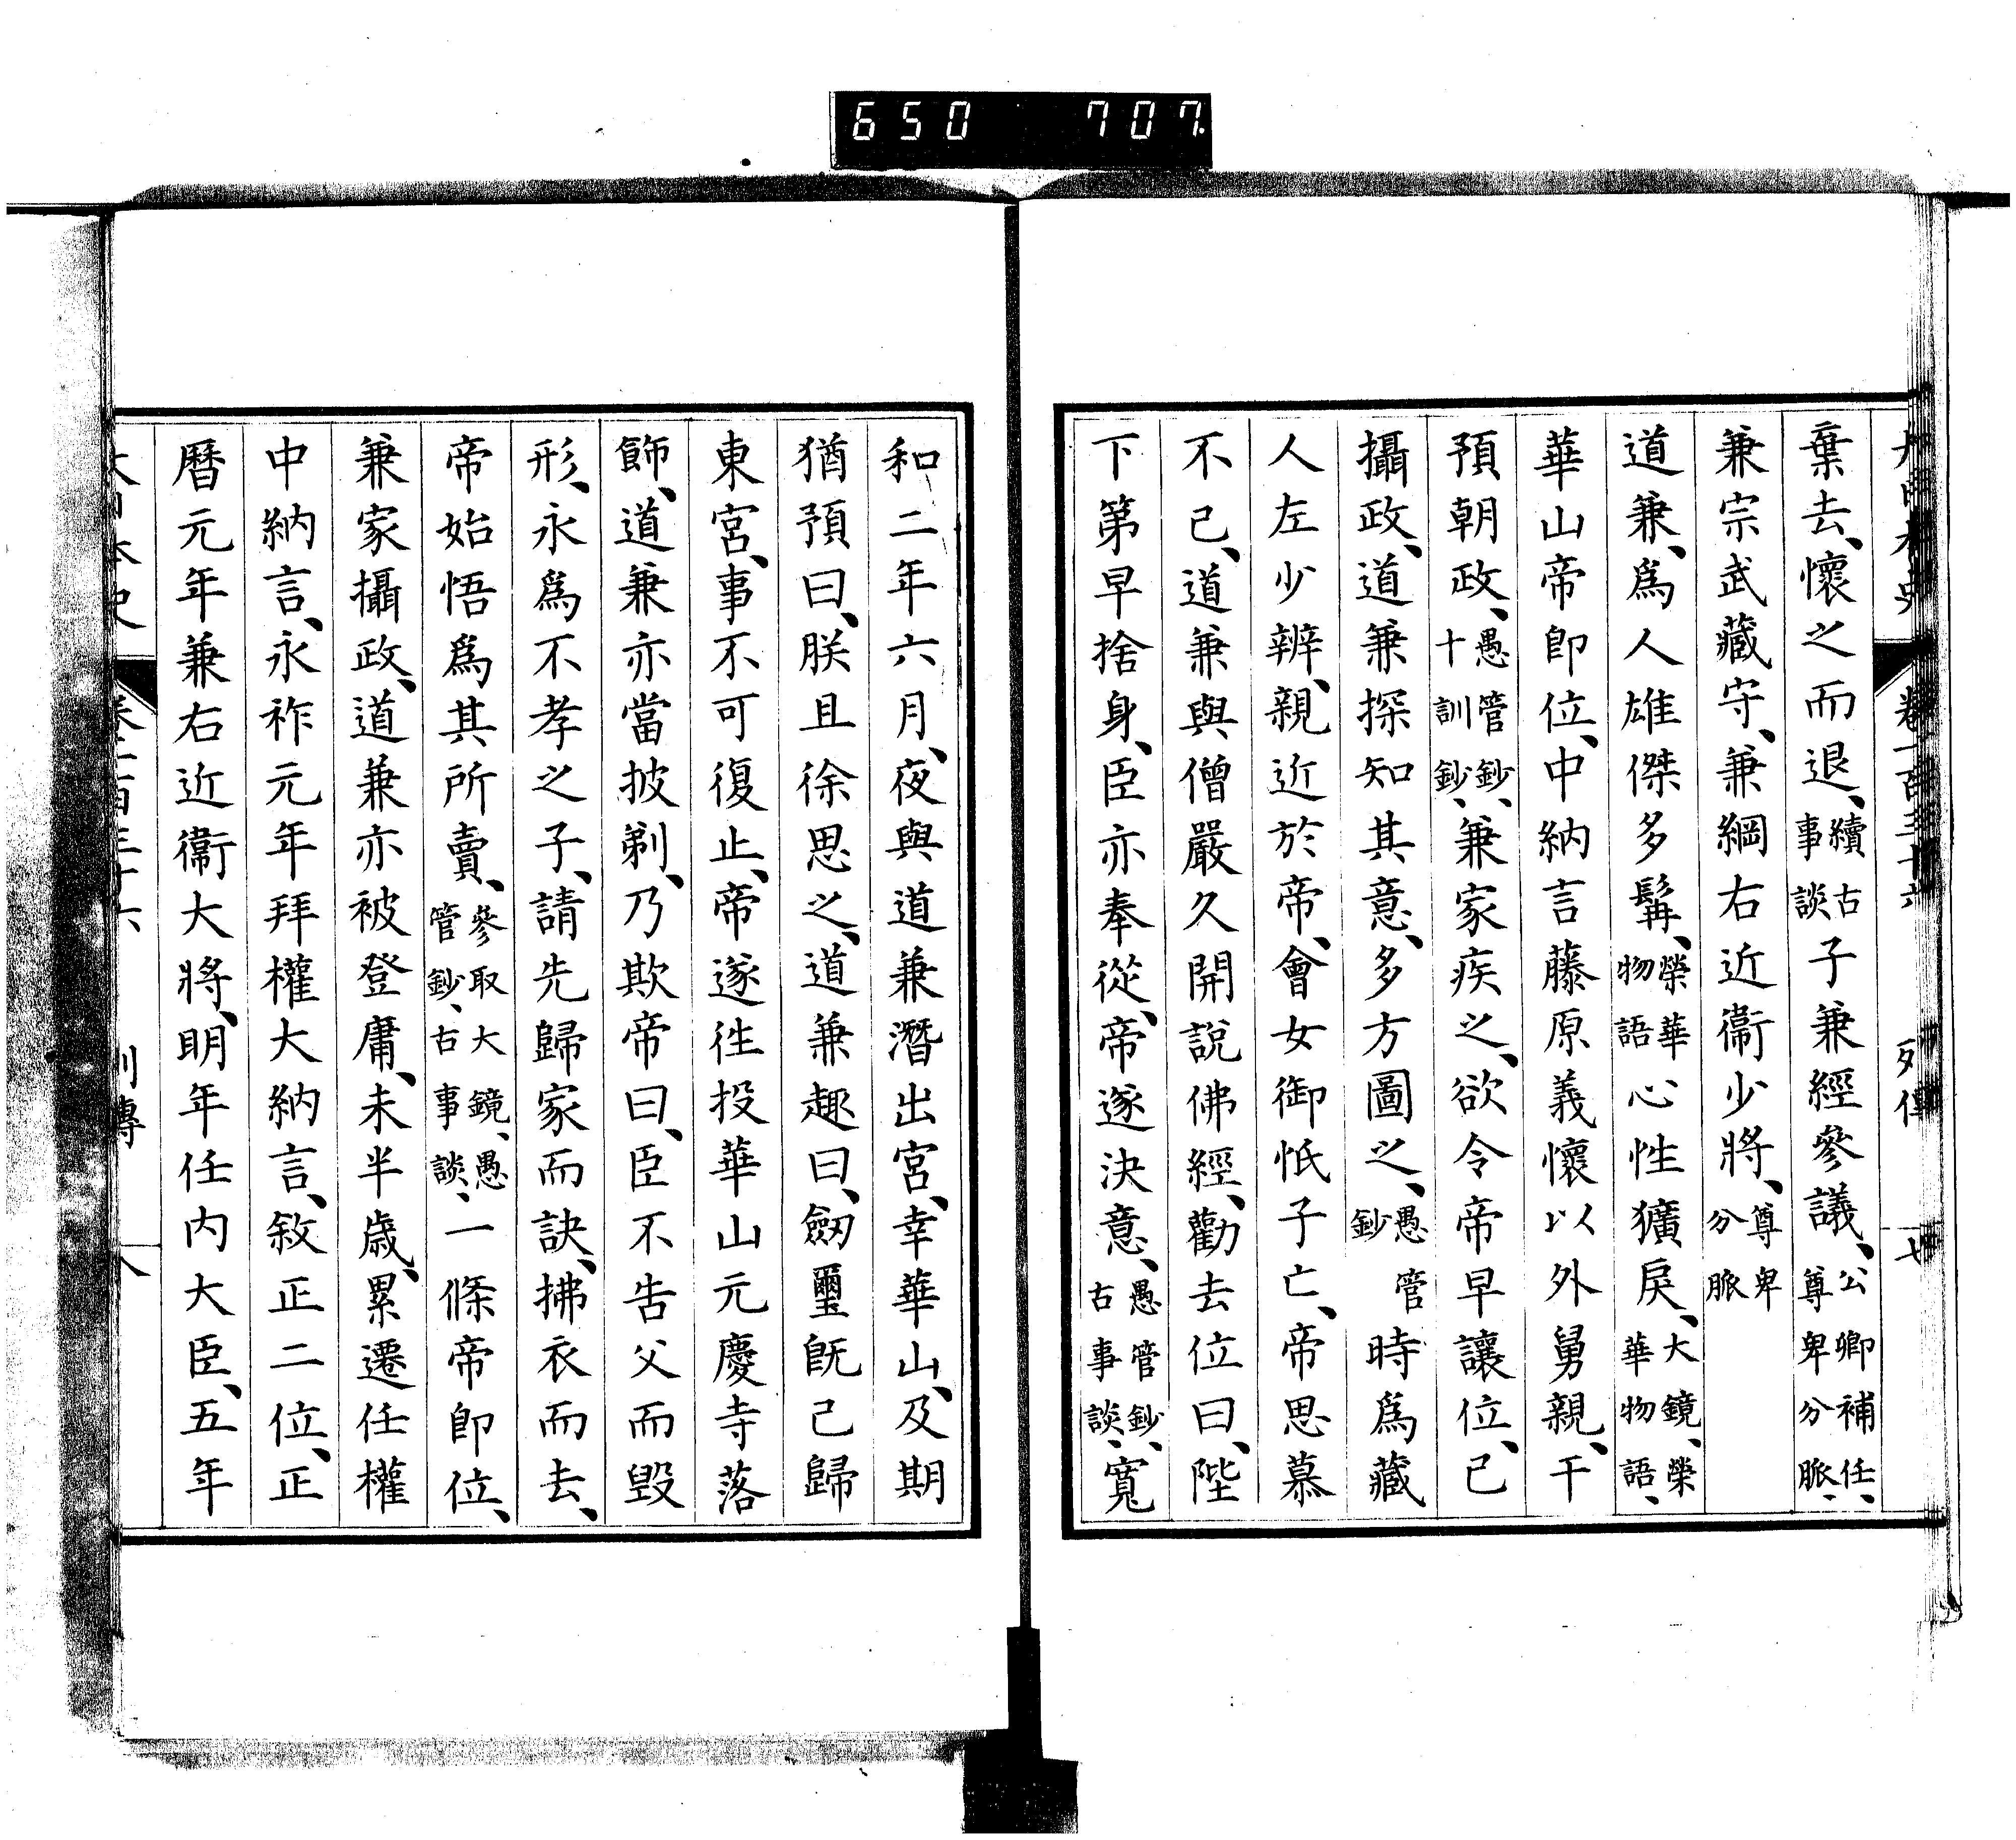 650 707.
大日本史 卷一百三十六 列傳 七
棄去、懷之而退、續古事談子兼經參議、公卿補任、尊卑分脈、
兼宗武藏守、兼綱右近衞少將、尊卑分脈
道兼、爲人雄傑多髯、榮華物語心性獷戾、大鏡、榮華物語、
華山帝卽位、中納言藤原義懷以外舅親、干
預朝政、愚管鈔、十訓鈔、兼家疾之、欲令帝早讓位、己
攝政、道兼探知其意、多方圖之、愚管鈔時爲藏
人左少辨、親近於帝、會女御忯子亡、帝思慕
不已、道兼與僧嚴久開說佛經、勸去位曰、陛
下第早捨身、臣亦奉從、帝遂決意、愚管鈔、古事談、寬
和二年六月、夜與道兼潛出宮、幸華山、及期
猶預曰、朕且徐思之、道兼趣曰、劔璽既已歸
東宮、事不可復止、帝遂徃投華山元慶寺落
飾、道兼亦當披剃、乃欺帝曰、臣不告父而毀
形、永爲不孝之子、請先歸家而訣、拂衣而去、
帝始悟爲其所賣、參取大鏡、愚管鈔、古事談、一條帝卽位、
兼家攝政、道兼亦被登庸、未半歲、累遷任權
中納言、永祚元年拜權大納言、敘正二位、正
曆元年兼右近衞大將、明年任内大臣、五年
大日本史 卷一百三十六 列傳 八